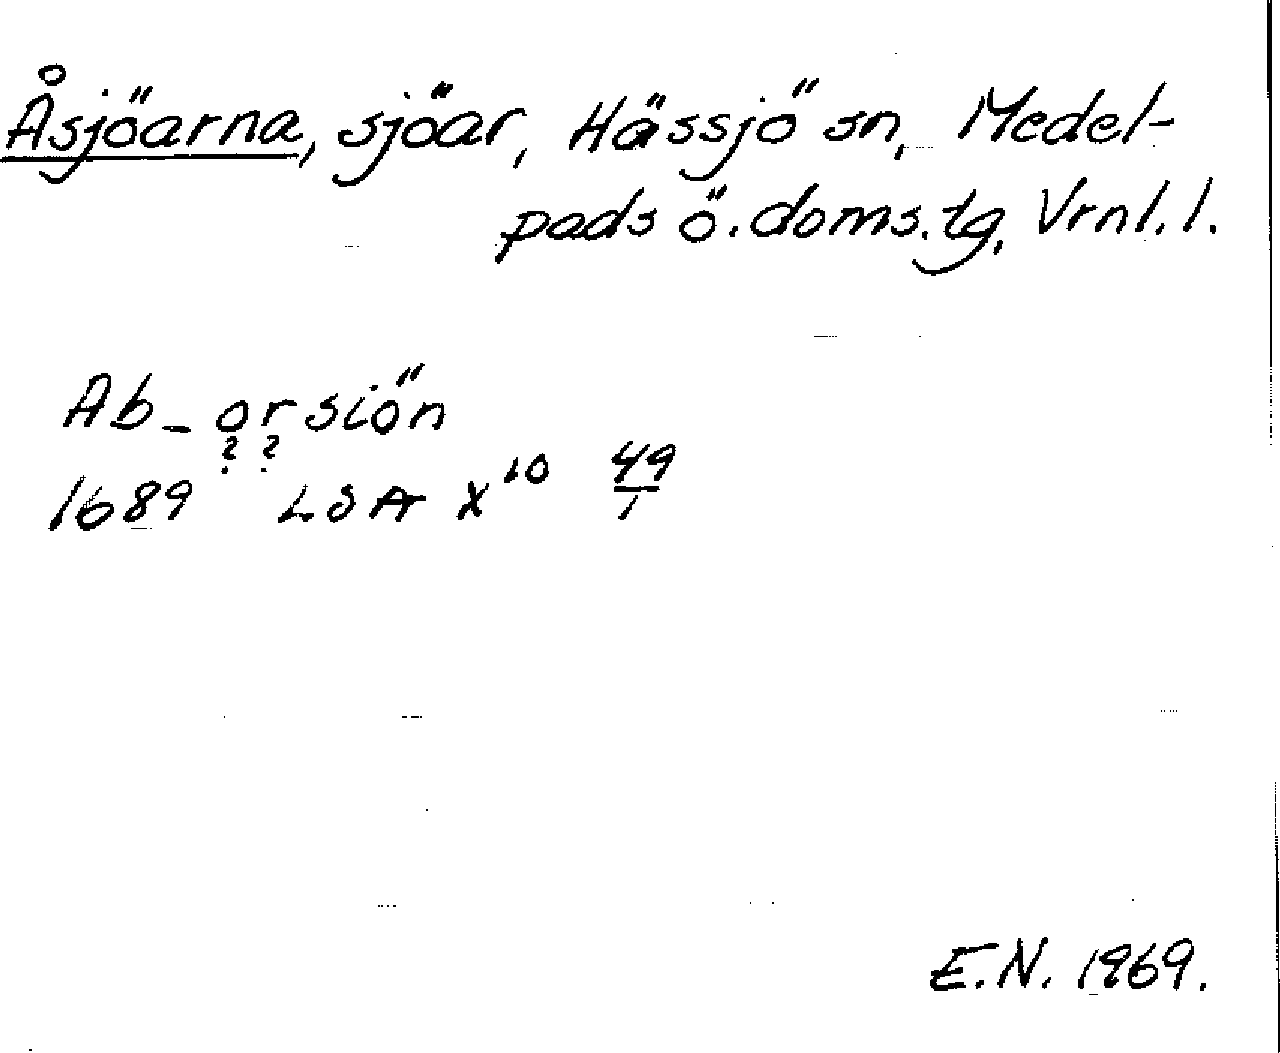 Åsjöarna, sjöar, Hässjö sn, Medel-
pads ö. doms.tg, Vrnl. l.
Ab-orsiön
? ?
1689 LSA X¹⁰ 49/1
E.N. 1969.